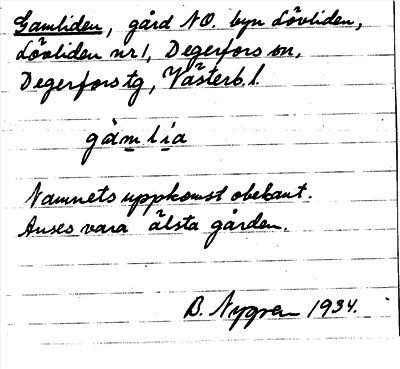 Gamliden, gård NO. byn Lövliden,
Lövliden nr 1, Degerfors sn,
Degerfors tg, Västerb. l.
gàmlia
Namnets uppkomst obekant.
Anses vara älsta gården.
B. Nygren 1934.